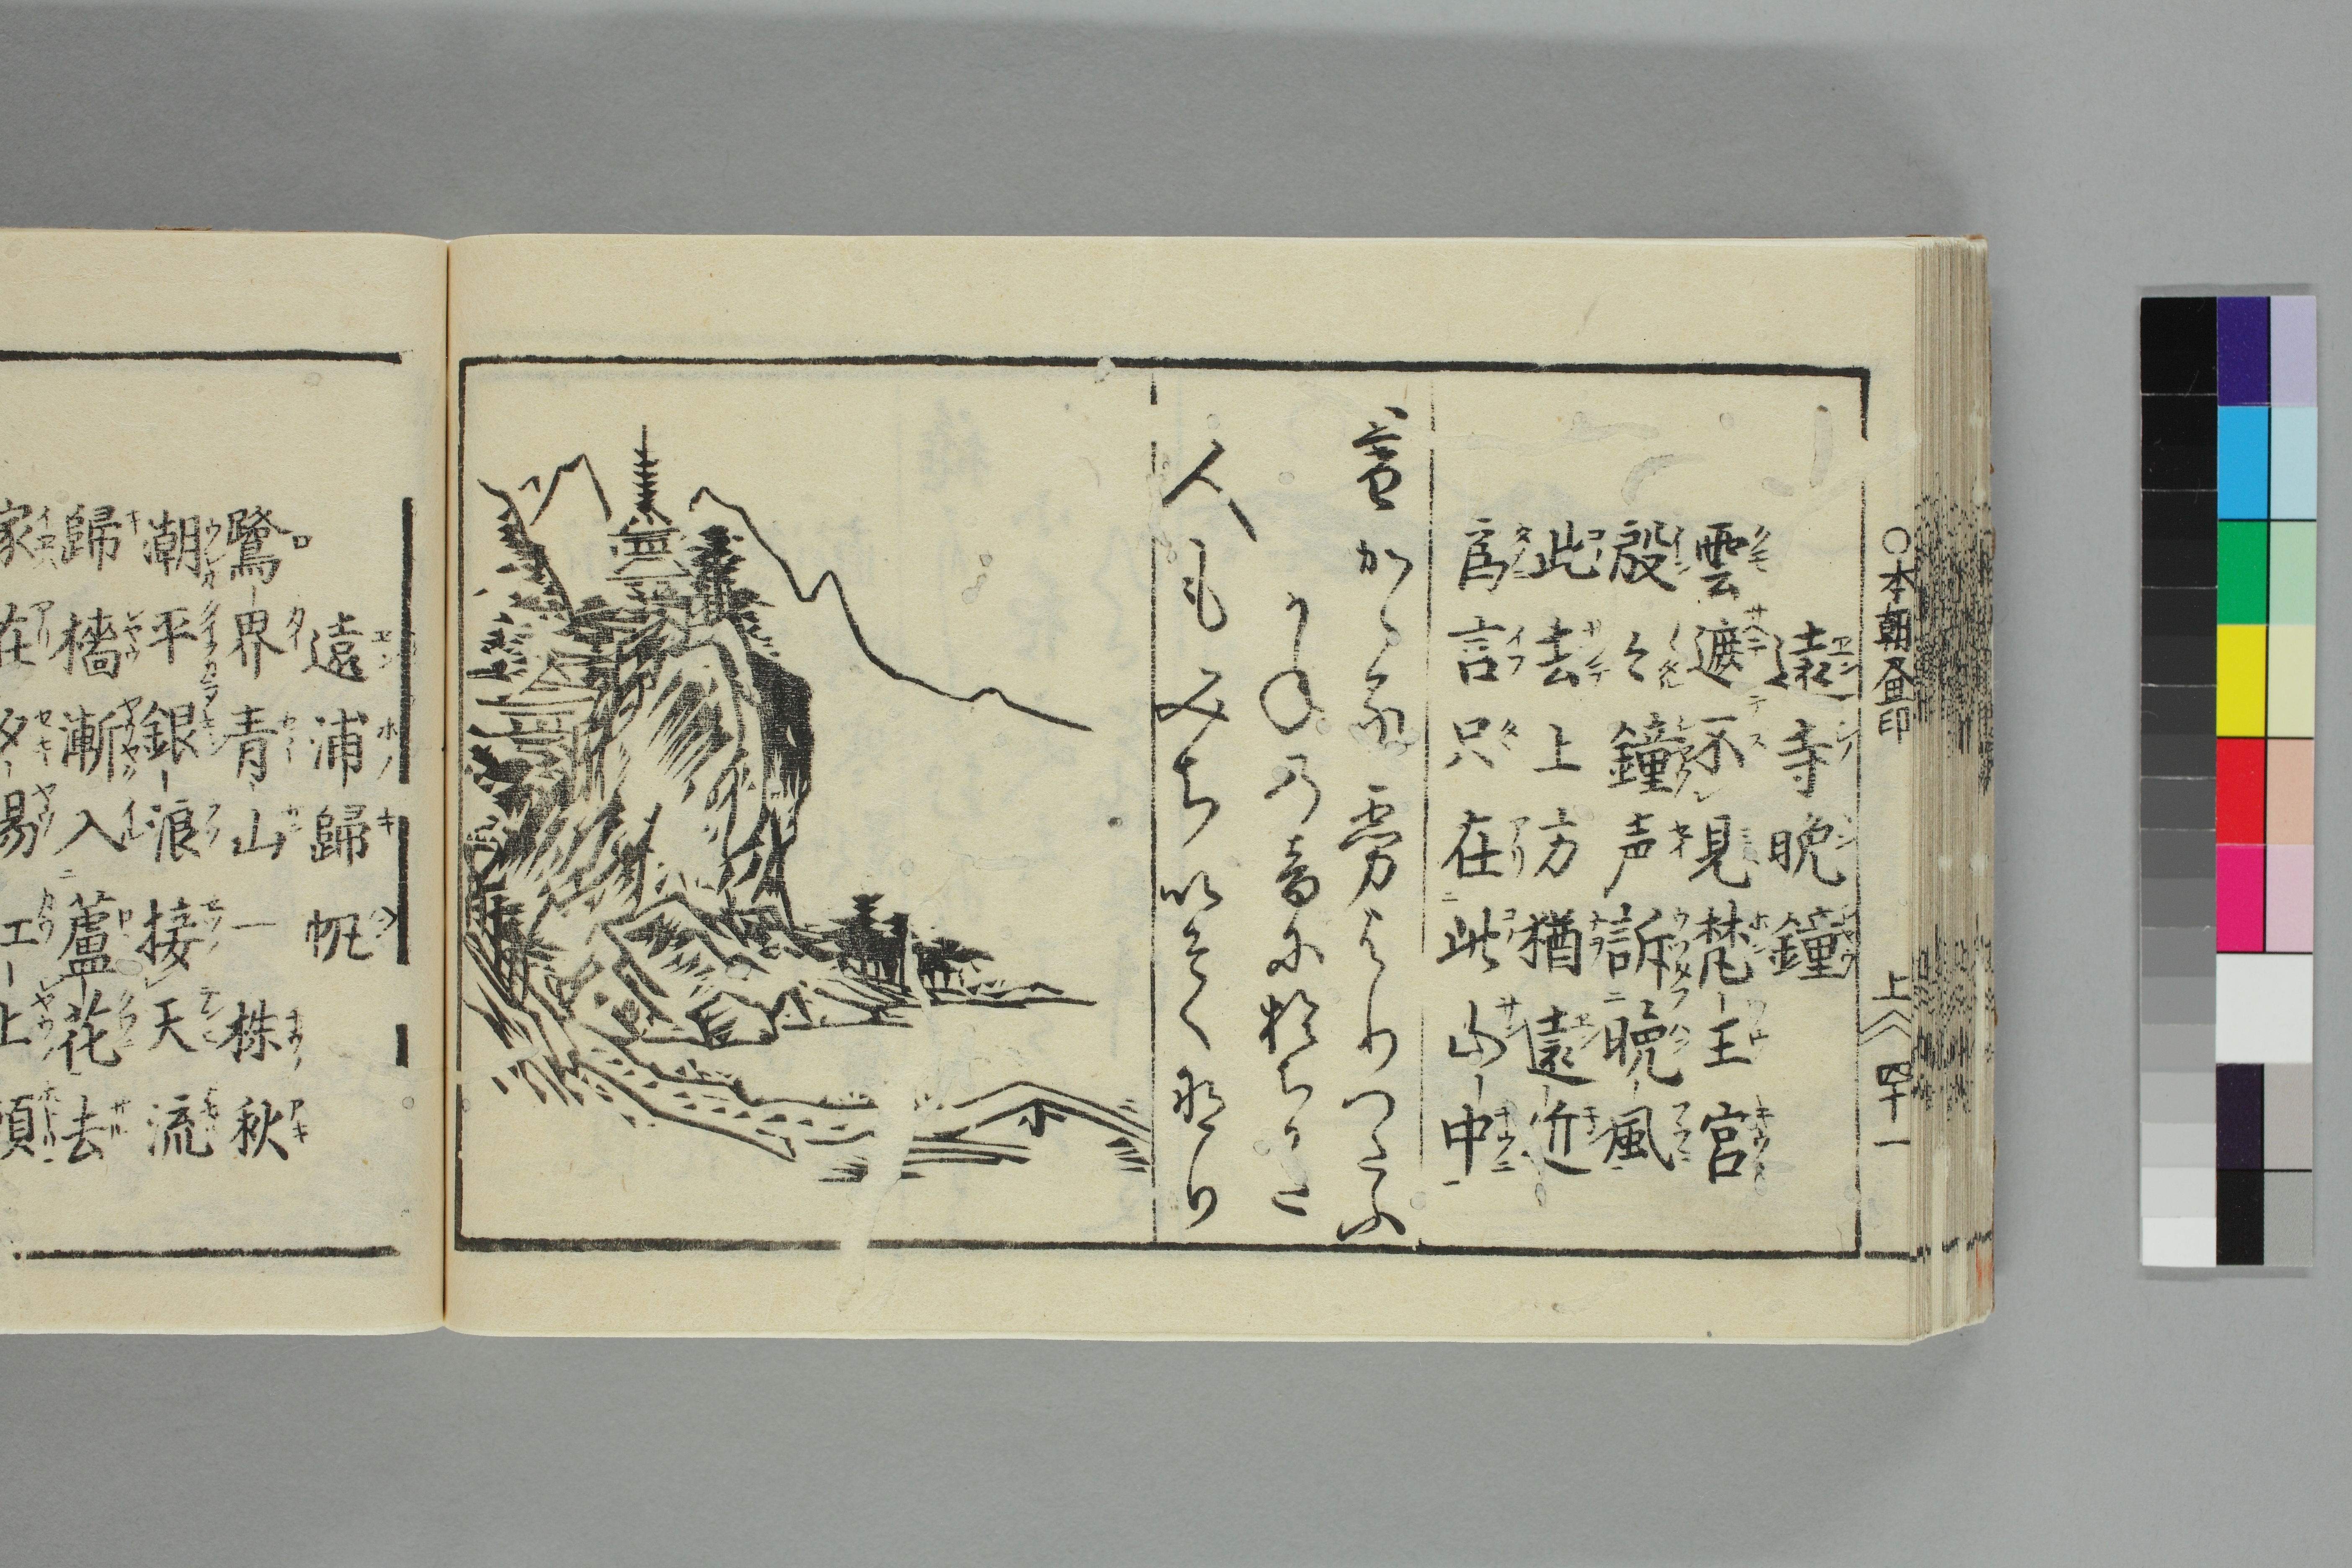 ○本朝畫印　上　四十一
遠寺晩鐘
雲遮不見梵王宮
殷々鐘声訴晩風
此去上方猶遠近
為言只在此山中
暮かゝる霧よりつたふ
かねの音に遠ちかた
人もみちいそくなり
遠浦歸帆
鷺界青山一株秋
潮平銀浪接天流
歸檣漸入蘆花去
家在夕陽江上頭